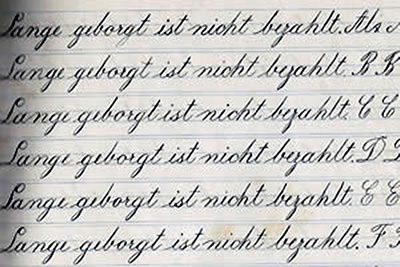 Lange geborgt ist nicht bezahlt. Als
Lange geborgt ist nicht bezahlt. B B
Lange geborgt ist nicht bezahlt. C C
Lange geborgt ist nicht bezahlt. D D
Lange geborgt ist nicht bezahlt. E E
Lange geborgt ist nicht bezahlt. F F